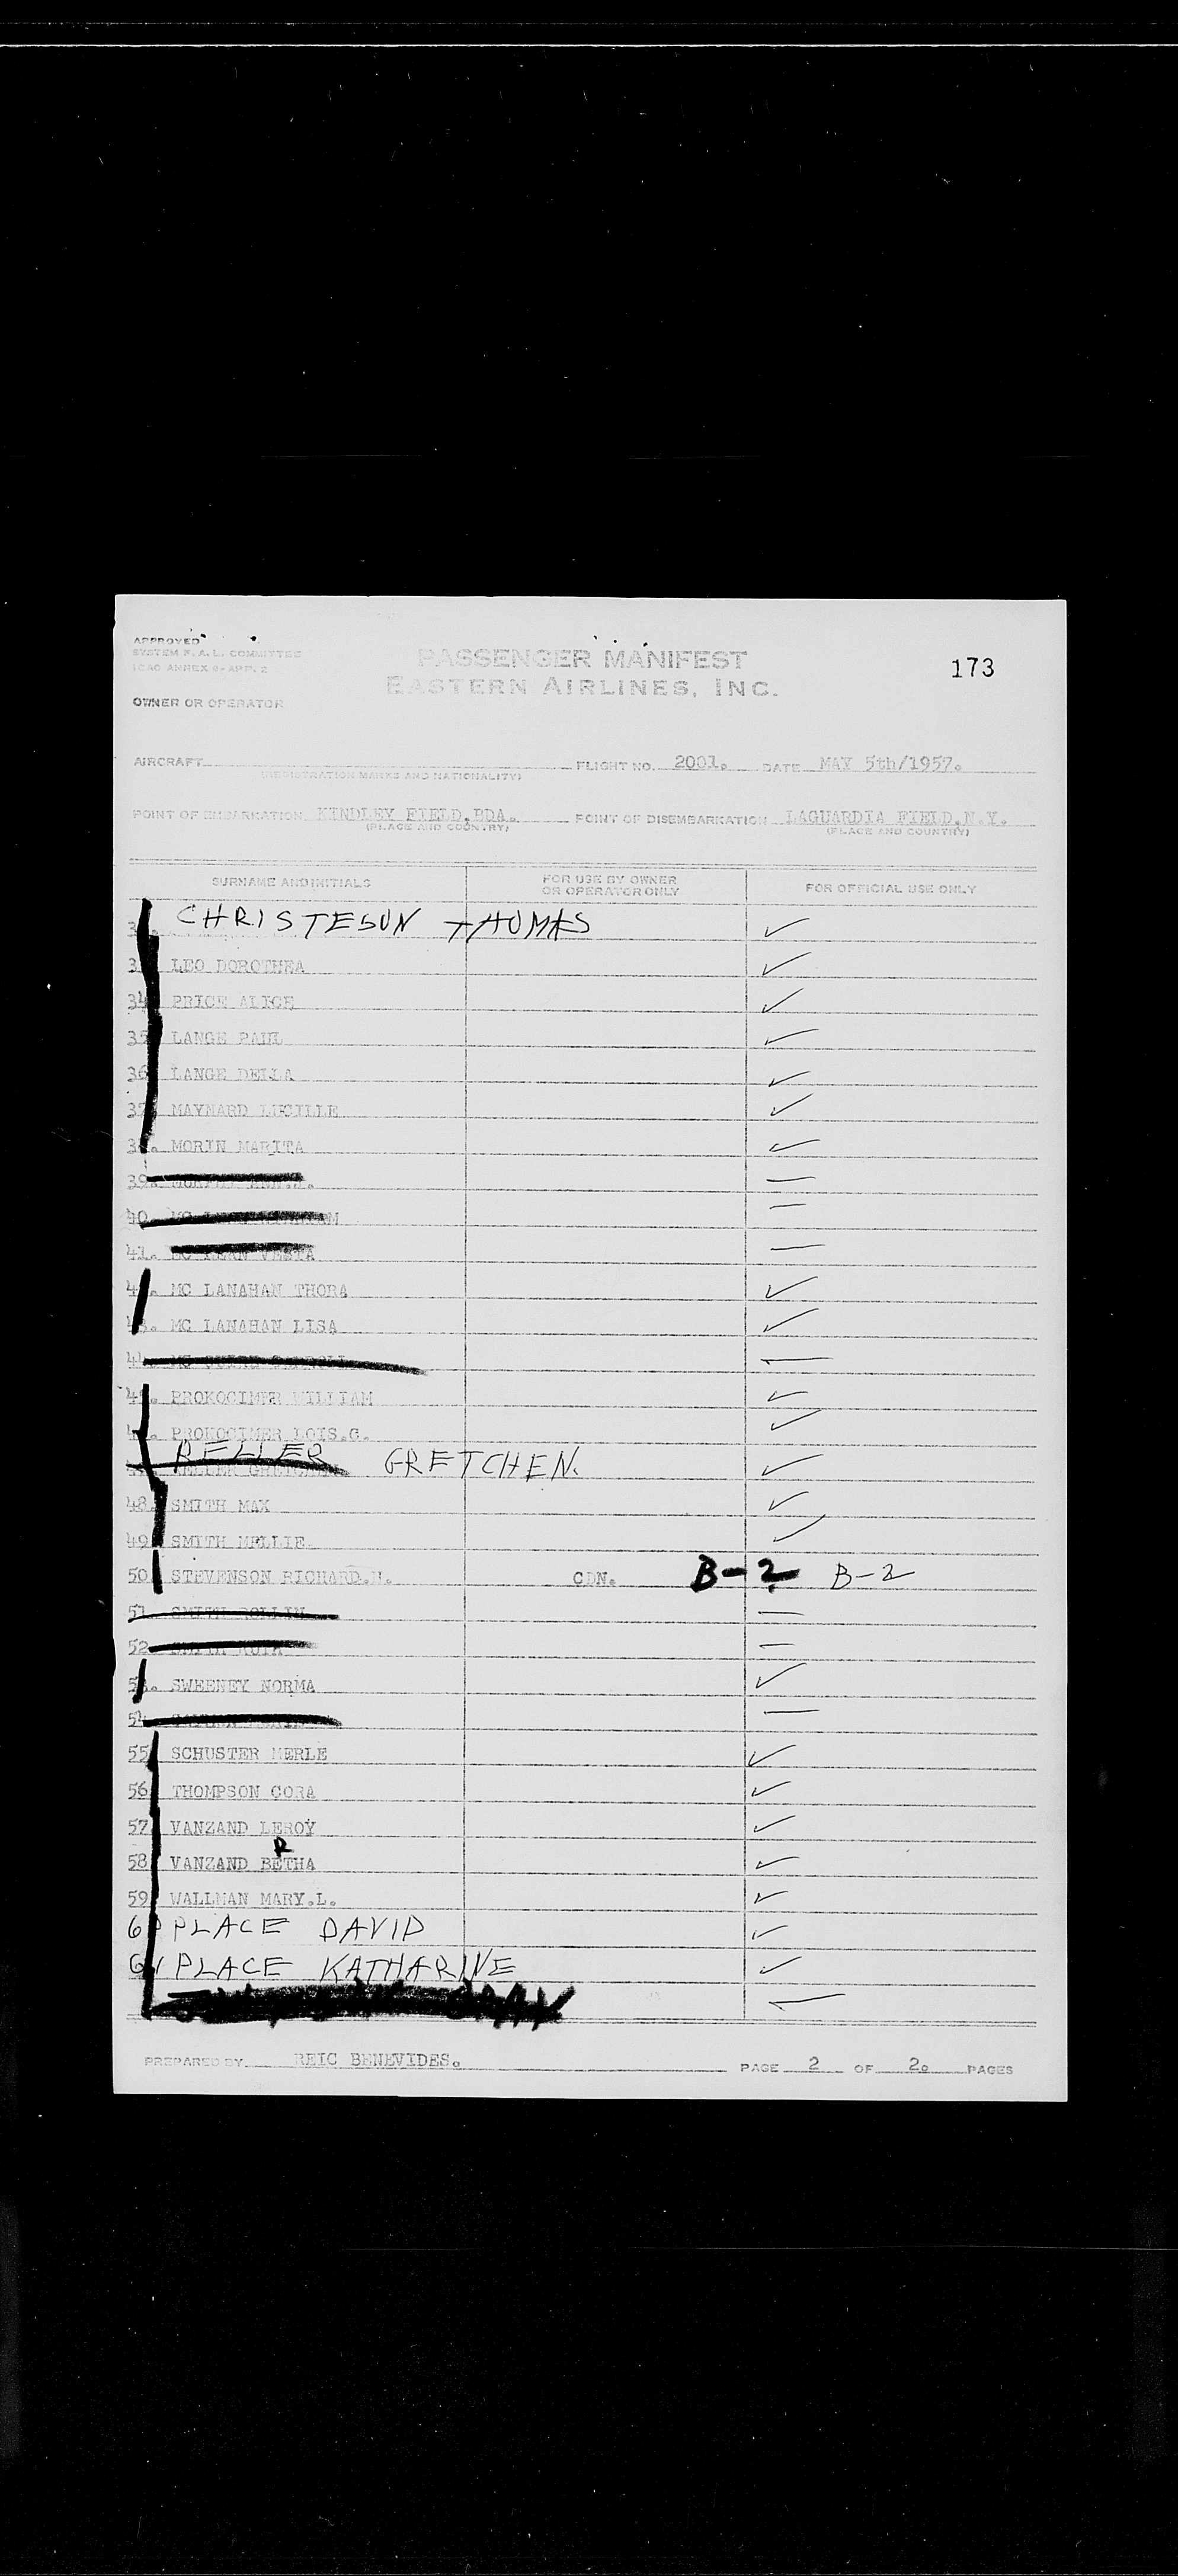 APPROVED
SYSTEM F.A.L. COMMITTEE
ICAO ANNEX 9-APP. 2
PASSENGER MANIFEST
EASTERN AIRLINES, INC.
173
OWNER OR OPERATOR
AIRCRAFT FLIGHT NO. 2001. DATE MAY 5th/1957.
(REGISTRATION MARKS AND NATIONALITY)
POINT OF EMBARKATION KINDLEY FIELD,BDA. POINT OF DISEMBARKATION LAGUARDIA FIELD,N.Y.
(PLACE AND COUNTRY) (PLACE AND COUNTRY)
SURNAME AND INITIALS FOR USE BY OWNER OR OPERATOR ONLY FOR OFFICIAL USE ONLY
CHRISTESUN THOMAS
LEO DOROTHEA
34 PRICE ALICE
35 LANGE PAUL
36 LANGE DELLA
37. MAYNARD LUCILLE
MORIN MARITA
39.
40.
41. VESTA
MC LANAHAN THORA
MC LANAHAN LISA
44.
PROKOCIMER WILLIAM
PROKOCIMER LOIS.G.
RELLER GRETCHEN.
48. SMITH MAX
49. SMITH MELLIE.
50 STEVENSON RICHARD.N. CDN. B-2 B-2
51. SMITH
52.
SWEENEY NORMA
54.
55 SCHUSTER MERLE
56 THOMPSON CORA
57. VANZAND LEROY
R
58 VANZAND BETHA
59 WALLMAN MARY.L.
60 PLACE DAVID
61 PLACE KATHARINE
PREPARED BY REIC BENEVIDES. PAGE 2 OF 2. PAGES